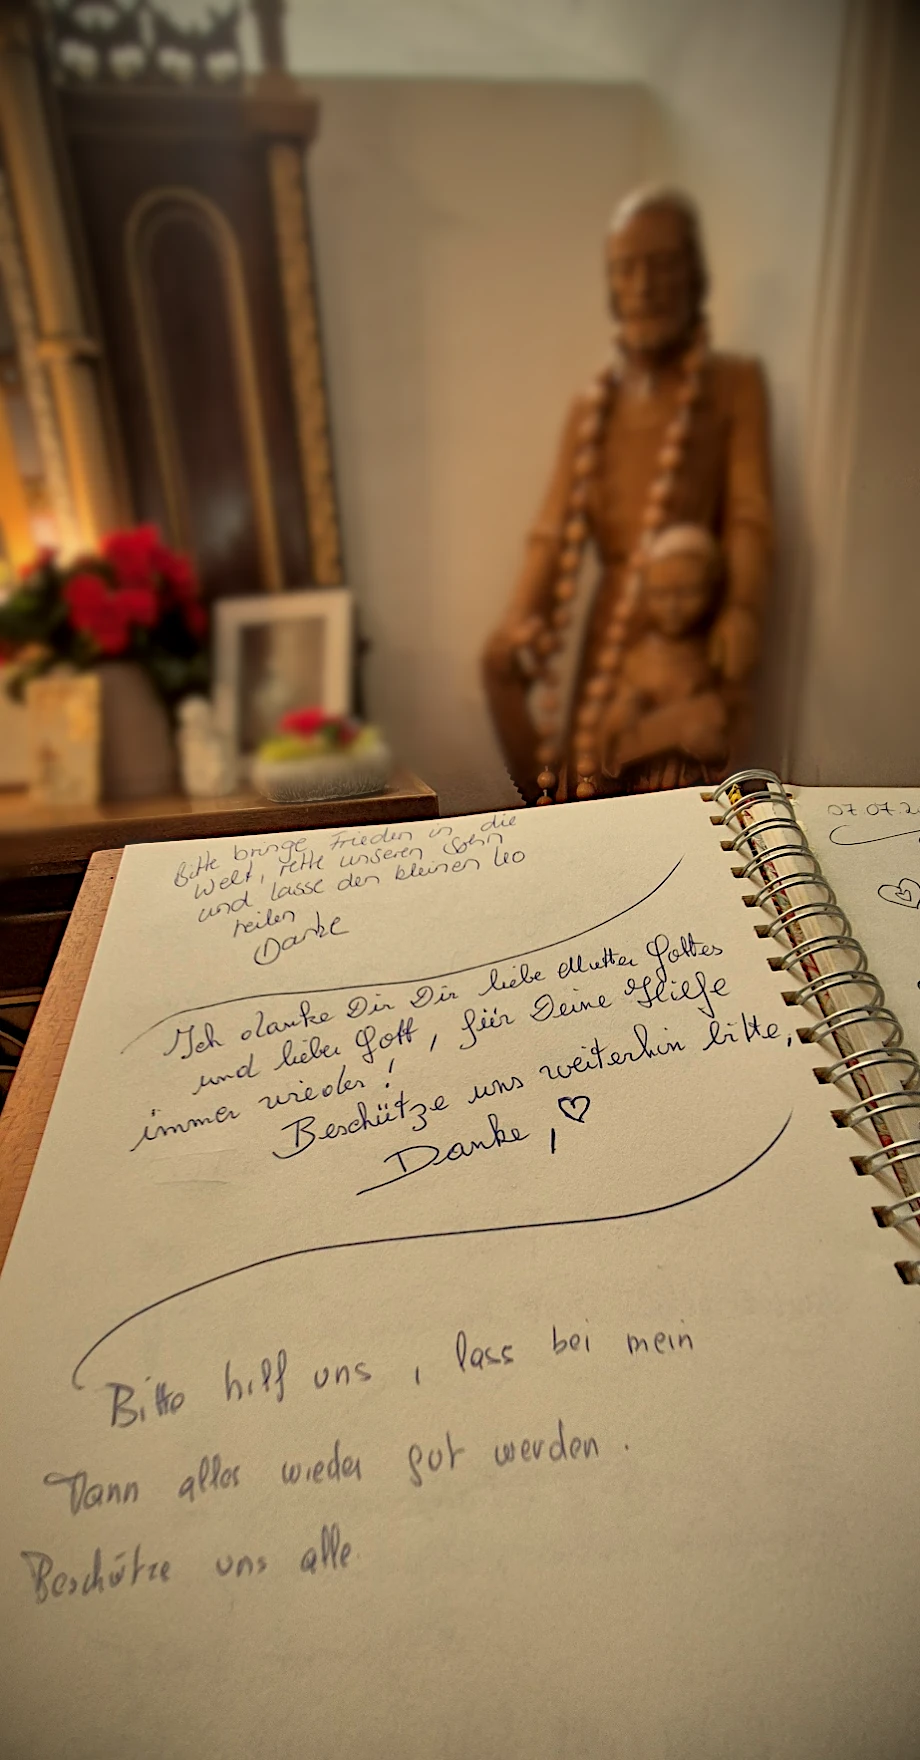 Bitte bringe Frieden in die
Welt, rette unseren Sohn
und lasse den kleinen Leo
heilen
Danke
Ich danke Dir Dir liebe Mutter Gottes
und lieber Gott, für Deine Hilfe
immer wieder!
Beschütze uns weiterhin bitte,
Danke, ♡
Bitte hilf uns, lass bei mein
Mann alles wieder gut werden.
Beschütze uns alle
07.07.2